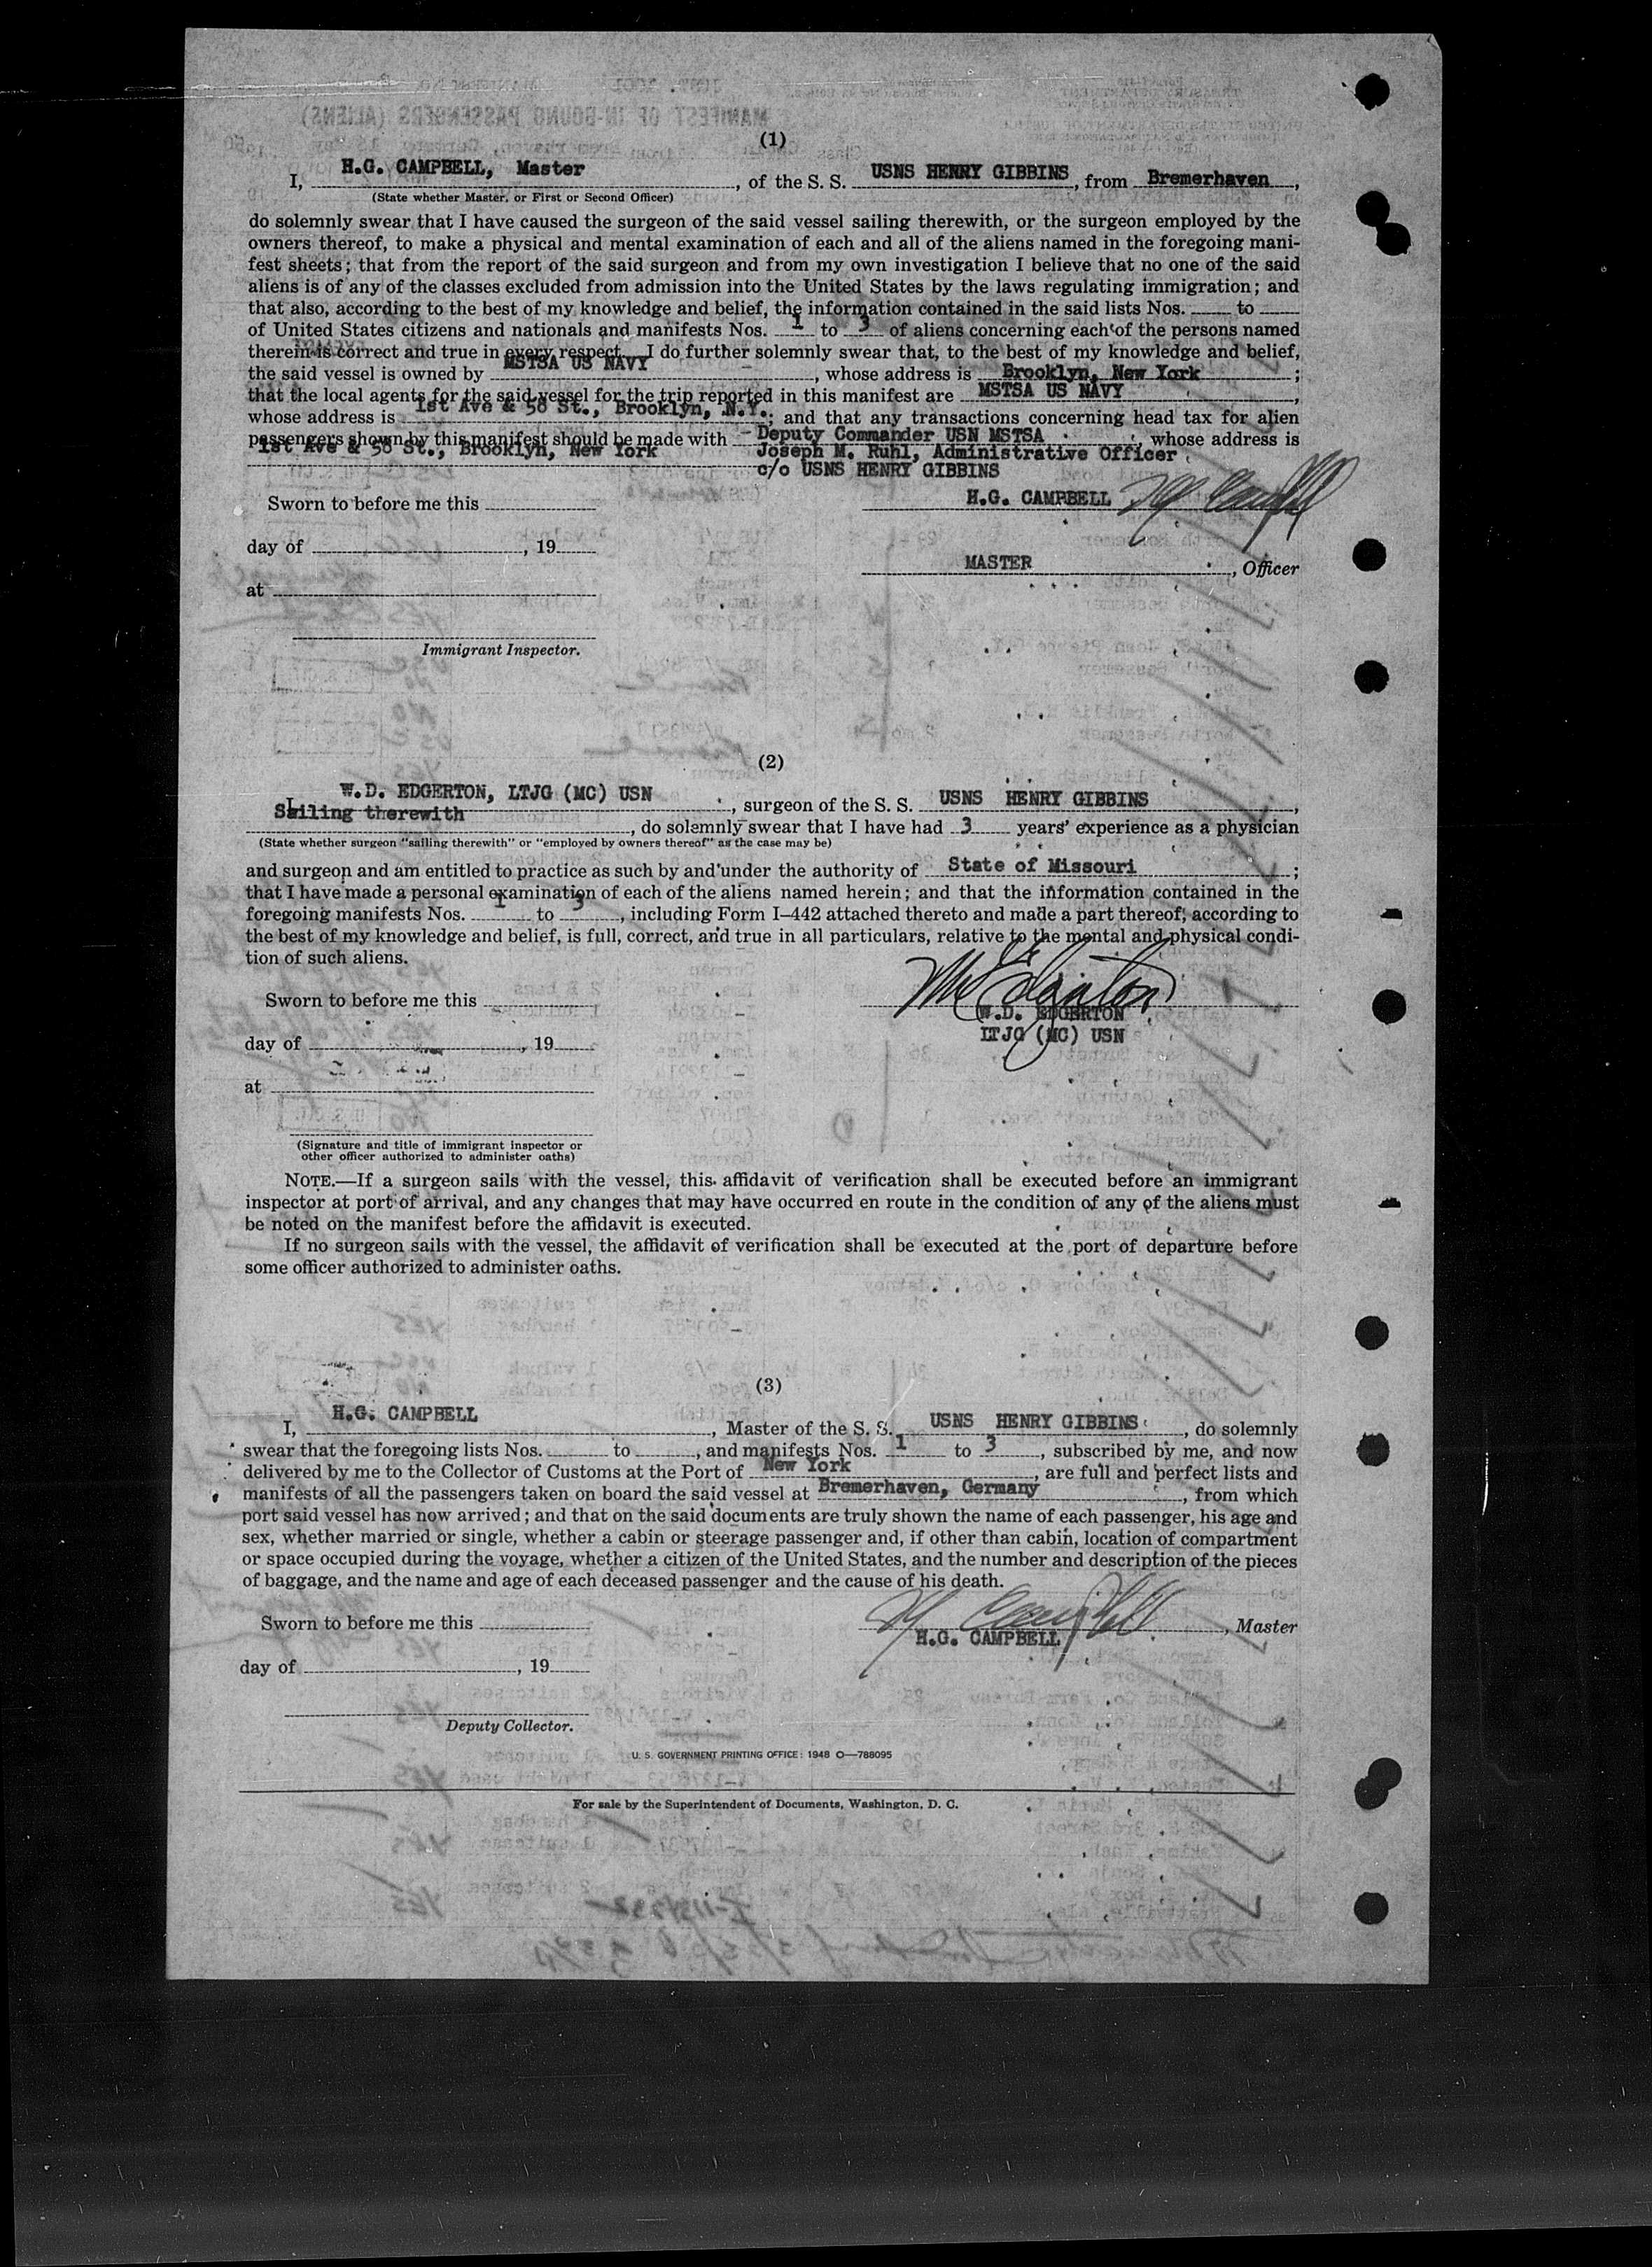 (1)
I, H.G. CAMPBELL, Master, of the S. S. USNS HENRY GIBBINS, from Bremerhaven,
(State whether Master, or First or Second Officer)
do solemnly swear that I have caused the surgeon of the said vessel sailing therewith, or the surgeon employed by the
owners thereof, to make a physical and mental examination of each and all of the aliens named in the foregoing mani-
fest sheets; that from the report of the said surgeon and from my own investigation I believe that no one of the said
aliens is of any of the classes excluded from admission into the United States by the laws regulating immigration; and
that also, according to the best of my knowledge and belief, the information contained in the said lists Nos. to
of United States citizens and nationals and manifests Nos. 1 to 3 of aliens concerning each of the persons named
therein is correct and true in every respect. I do further solemnly swear that, to the best of my knowledge and belief,
the said vessel is owned by MSTSA US NAVY, whose address is Brooklyn, New York;
that the local agents for the said vessel for the trip reported in this manifest are MSTSA US NAVY,
whose address is 1st Ave & 58 St., Brooklyn, N.Y.; and that any transactions concerning head tax for alien
passengers shown by this manifest should be made with Deputy Commander USN MSTSA, whose address is
1st Ave & 58 St., Brooklyn, New York Joseph M. Ruhl, Administrative Officer
c/o USNS HENRY GIBBINS
Sworn to before me this H.G. CAMPBELL HG Campbell
day of , 19
MASTER, Officer
at
Immigrant Inspector.
(2)
I, W.D. EDGERTON, LTJG (MC) USN, surgeon of the S. S. USNS HENRY GIBBINS,
Sailing therewith, do solemnly swear that I have had 3 years' experience as a physician
(State whether surgeon "sailing therewith" or "employed by owners thereof" as the case may be)
and surgeon and am entitled to practice as such by and under the authority of State of Missouri;
that I have made a personal examination of each of the aliens named herein; and that the information contained in the
foregoing manifests Nos. 1 to 3, including Form I–442 attached thereto and made a part thereof, according to
the best of my knowledge and belief, is full, correct, and true in all particulars, relative to the mental and physical condi-
tion of such aliens.
Sworn to before me this WD Edgerton
W.D. EDGERTON
LTJG (MC) USN
day of , 19
at
(Signature and title of immigrant inspector or
other officer authorized to administer oaths)
NOTE.—If a surgeon sails with the vessel, this affidavit of verification shall be executed before an immigrant
inspector at port of arrival, and any changes that may have occurred en route in the condition of any of the aliens must
be noted on the manifest before the affidavit is executed.
If no surgeon sails with the vessel, the affidavit of verification shall be executed at the port of departure before
some officer authorized to administer oaths.
(3)
I, H.G. CAMPBELL, Master of the S. S. USNS HENRY GIBBINS, do solemnly
swear that the foregoing lists Nos. to , and manifests Nos. 1 to 3, subscribed by me, and now
delivered by me to the Collector of Customs at the Port of New York, are full and perfect lists and
manifests of all the passengers taken on board the said vessel at Bremerhaven, Germany, from which
port said vessel has now arrived; and that on the said documents are truly shown the name of each passenger, his age and
sex, whether married or single, whether a cabin or steerage passenger and, if other than cabin, location of compartment
or space occupied during the voyage, whether a citizen of the United States, and the number and description of the pieces
of baggage, and the name and age of each deceased passenger and the cause of his death.
Sworn to before me this HG Campbell, Master
H.G. CAMPBELL
day of , 19
Deputy Collector.
U. S. GOVERNMENT PRINTING OFFICE: 1948 O—788095
For sale by the Superintendent of Documents, Washington, D. C.